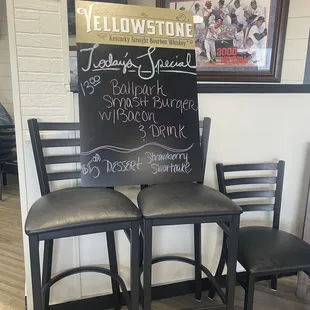 YELLOWSTONE
Kentucky Straight Bourbon Whiskey
Today's Special
Ballpark
Smash Burger
w/Bacon
& Drink
Dessert Strawberry
Shortcake
3000